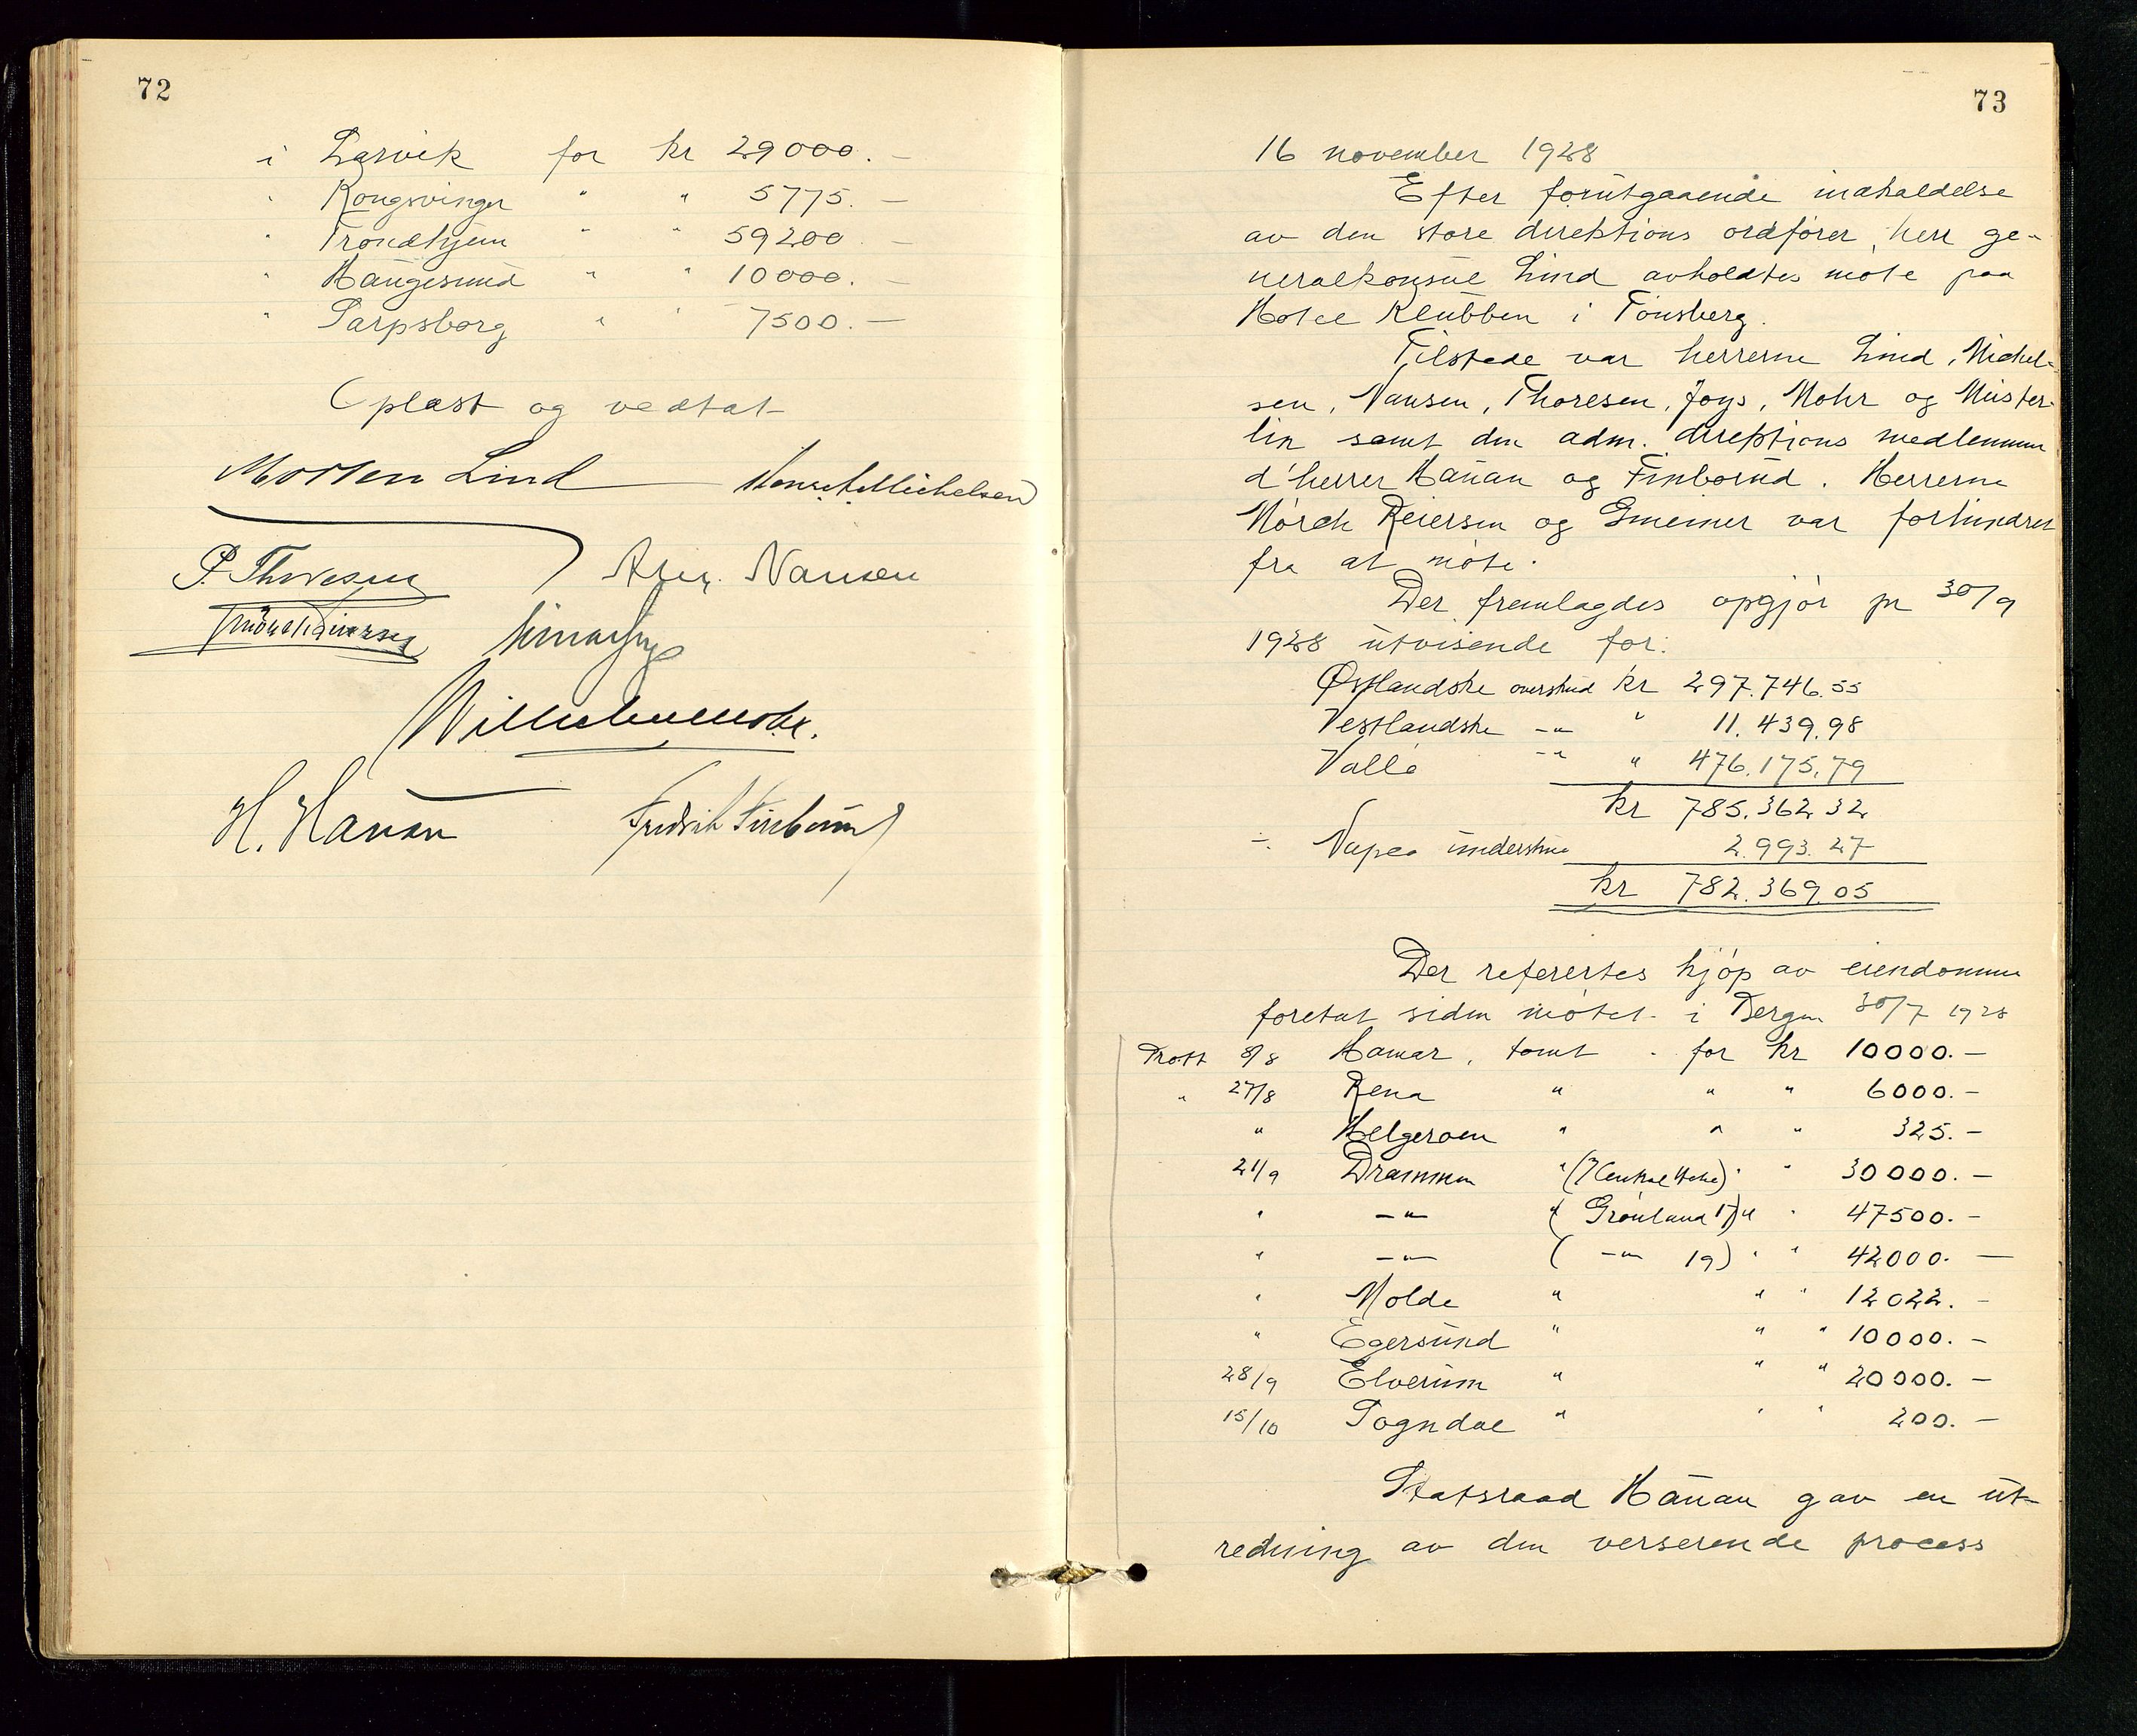 72
i Larvik for kr 29000.-
" Kongsvinger " " 5775.-
" Trondhjem " " 59200.-
" Haugesund " " 10000.-
" Sarpsborg " " 7500.-
Oplæst og vedtat
Morten Lind Hans A. Michelsen
P. Thoresen Nansen
Wilhelm Mohr.
H. Hauan Fredrik Finborud
73
16 november 1928
Efter forutgaaende indkaldelse
av den store direktions ordfører, herr ge-
neralkonsul Lind avholdtes møte paa
Hotel Klubben i Tønsberg.
Tilstede var herrerne Lind, Michel-
sen, Nansen, Thoresen, Joys, Mohr og Müster-
lin samt den adm. direktions medlemmer
d'herrer Hauan og Finborud. Herrerne
Mørch Reiersen og Gmeiner var forhindret
fra at møte.
Der fremlagdes opgjør pr 30/9
1928 utvisende for:
Østlandske overskud kr 297.746.55
Vestlandske -"- " 11.439,98
Vallø -"- " 476.175,79
kr 785.362 32
÷ Napea underskud 2.993.27
kr 782.369,05
Der refereertes kjøp av eiendomme
foretat siden møtet i Bergen 30/7 1928
Prott 8/8 Hamar, tomt - for kr 10000.-
" 27/8 Rena " " " 6000.-
" Helgeroen " " " 325.-
21/9 Drammen " " " 30000.-
" -"- " (Grønland 17) " " 47500.-
" -"- ( -"- 19) " " 42000.-
" Molde " " " 12022.-
" Egersund " " " 10000.-
28/9 Elverum " " " 20000.-
15/10 Sogndal " " " 200.-
Statsraad Hauan gav en ut-
redning av den verserende process